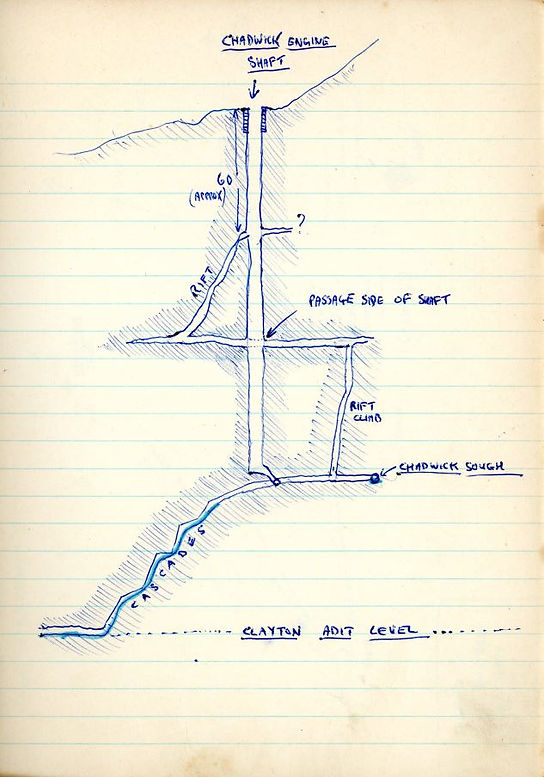 CHADWICK ENGINE
SHAFT
60
(APPROX)
?
RIFT
PASSAGE SIDE OF SHAFT
RIFT
CLIMB
CHADWICK SOUGH
CASCADES
CLAYTON ADIT LEVEL